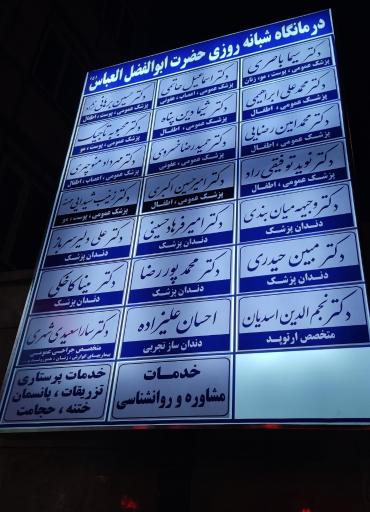 درمانگاه شبانه روزی حضرت ابوالفضل العباس (ع)
دکتر سیما باصری
پزشک عمومی ، پوست ، مو، زنان
دکتر اسماعیل حاتمی
پزشک عمومی ، اعصاب ، عفونی
دکتر حسین برهانی نژاد
پزشک عمومی ، پوست ، اطفال
دکتر محمدعلی ابراهیمی
پزشک عمومی ، اطفال
دکتر شیما دین پناه
پزشک عمومی ، اطفال
دکتر محبوبه تاجیک
پزشک عمومی ، پوست ، مو
دکتر محمد امین رضایی
پزشک عمومی ، اطفال
دکتر حمید رضا خسروی
پزشک عمومی ، عفونی
دکتر مهرداد منوچهری
پزشک عمومی ، اعصاب ، اطفال
دکتر نوید توفیقی راد
پزشک عمومی ، اطفال
دکتر امیرحسین اکبری
پزشک عمومی ، اطفال
دکتر
پزشک عمومی ، پوست ، مو
دکتر وجیهه میان بندی
دندان پزشک
دکتر امیر فرهاد حسینی
دندان پزشک
دکتر علی دلیر سرباز
دندان پزشک
دکتر مبین حیدری
دندان پزشک
دکتر محمد پور رضا
دندان پزشک
دکتر مینا کاخکی
دندان پزشک
دکتر نجم الدین اسدیان
متخصص ارتوپد
احسان علیزاده
دندان ساز تجربی
دکتر سارا سعیدی
متخصص جراحی عمومی
خدمات
مشاوره و روانشناسی
خدمات پرستاری
تزریقات ، پانسمان
ختنه ، حجامت